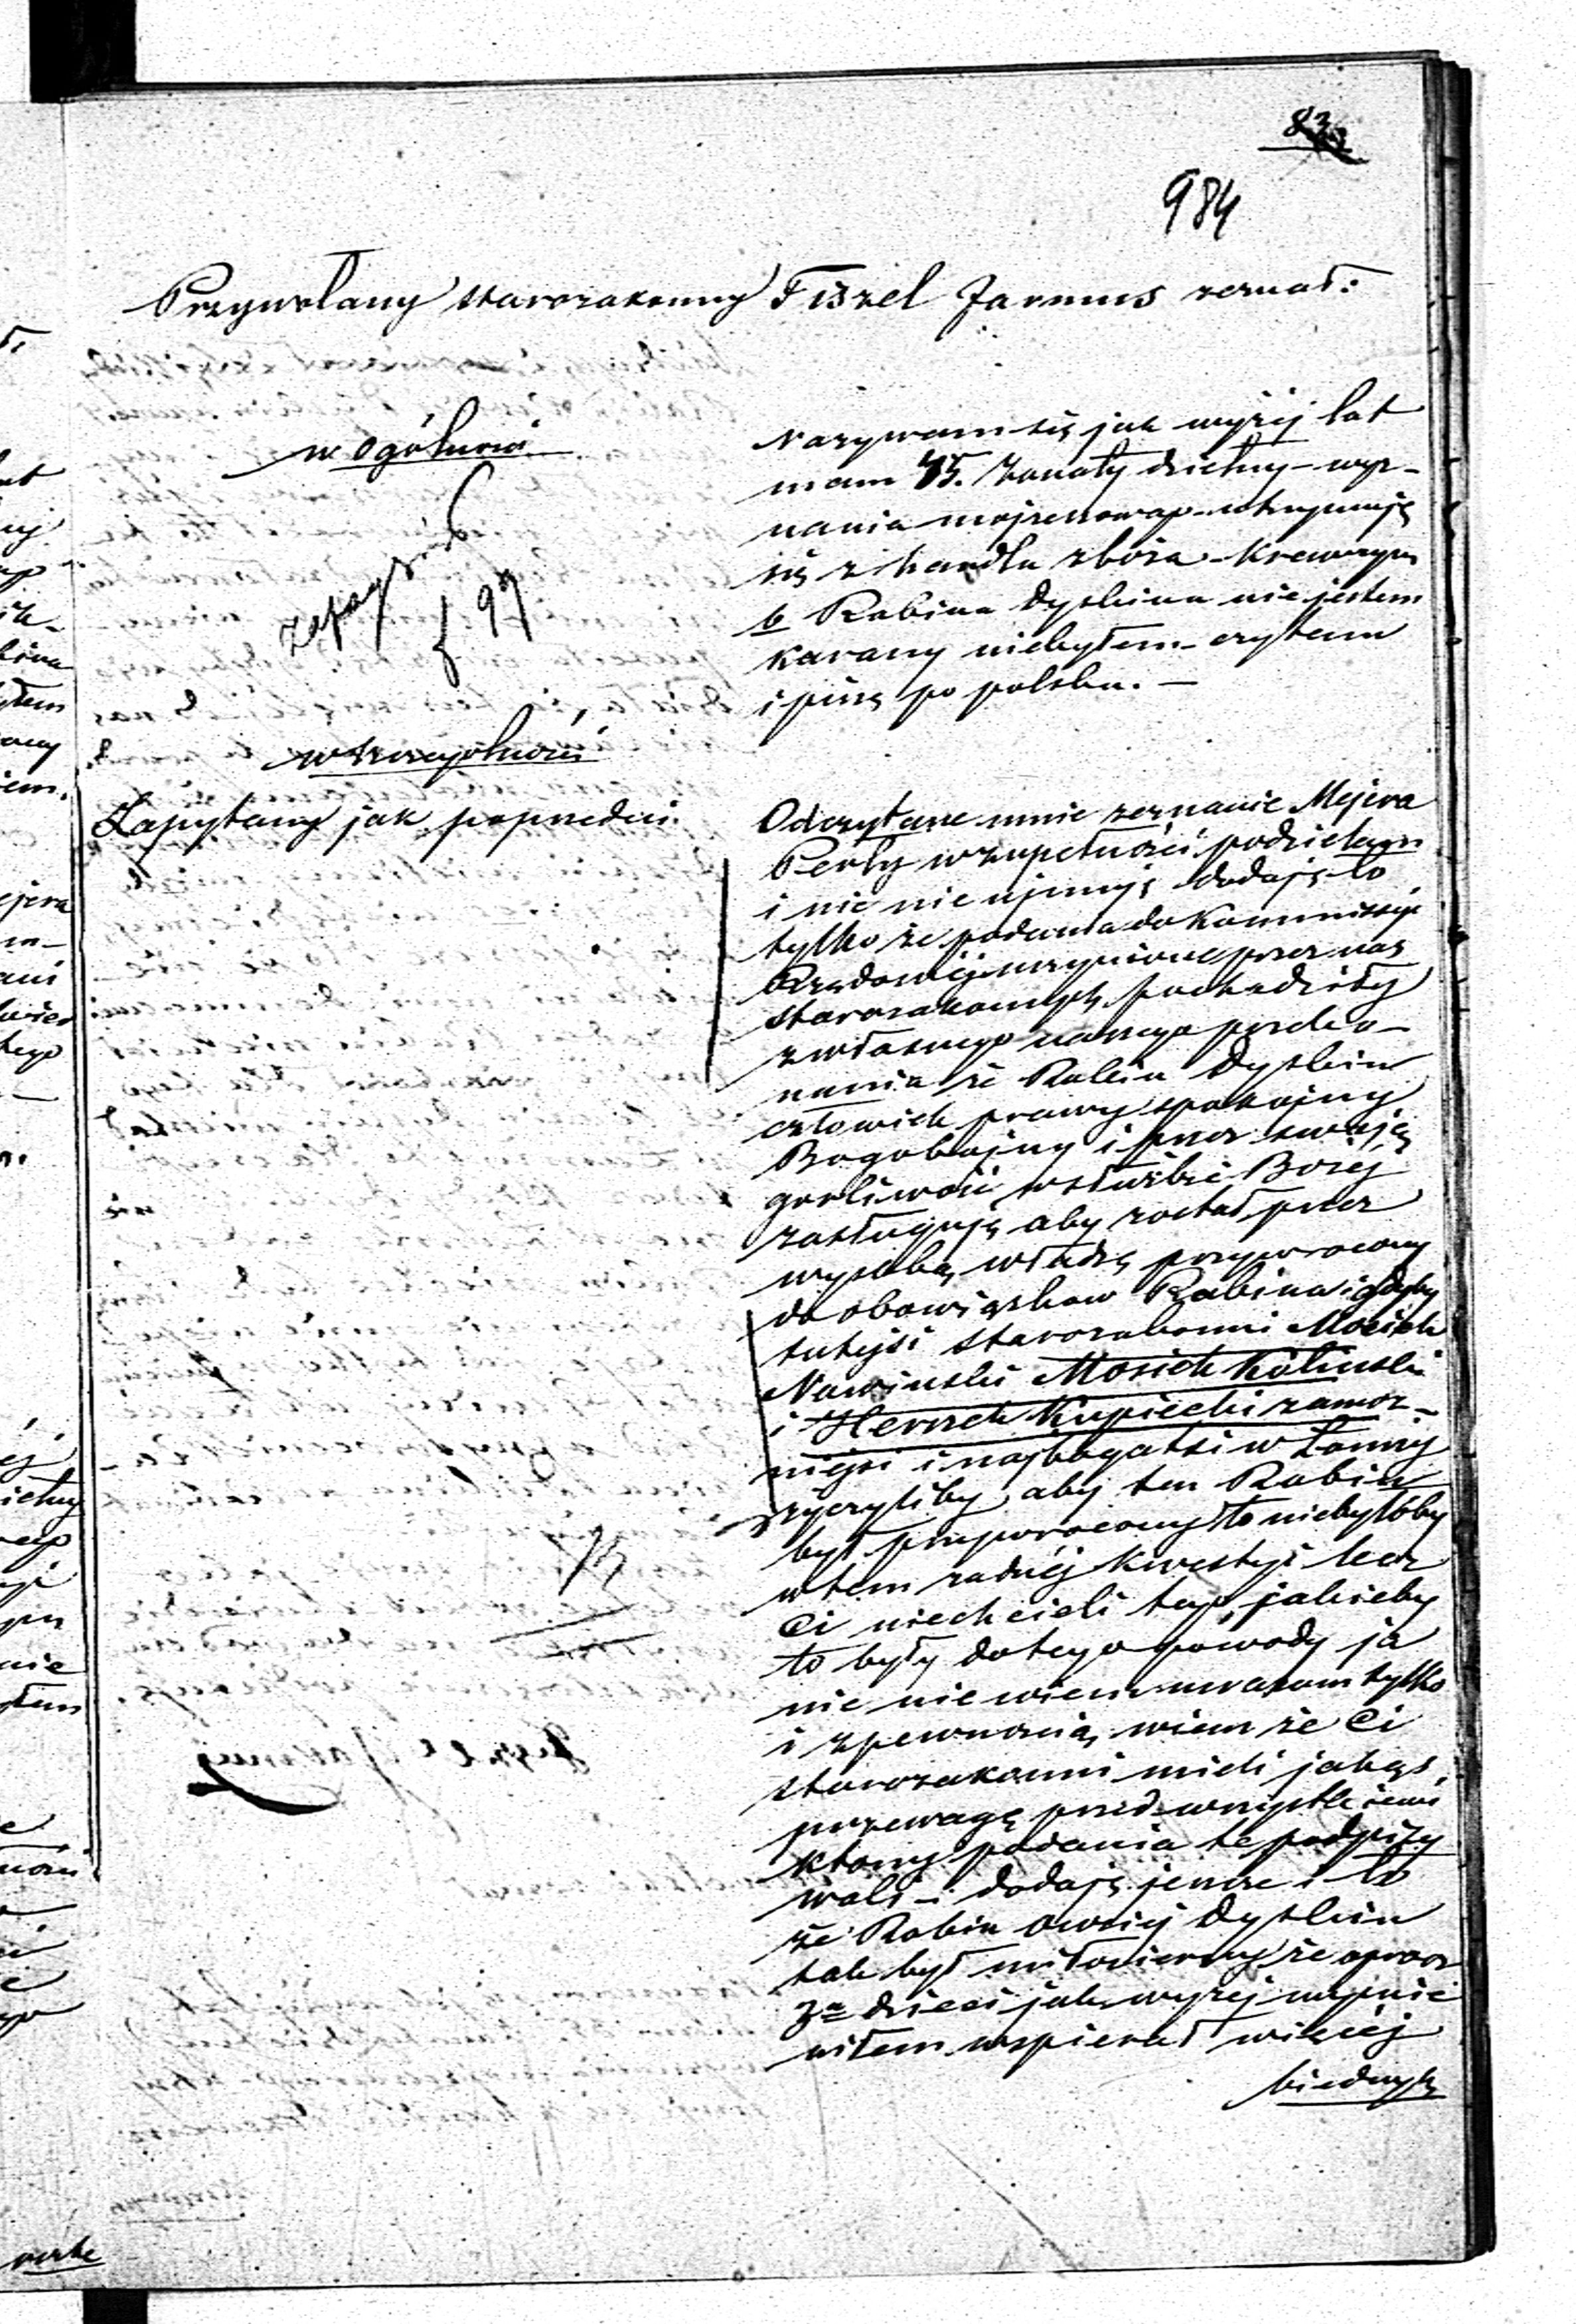 984
Przywołany starozakonny Fiszel Jarmus zeznał:
w ogólności
Nazywam się jak wyżéj lat
mam 45. Żonaty dzietny – wyz-
nania mojżeszowego – utrzymuję
się z handlu zboża – Krewnym
Rabina Dyskina nie jestem
karany niebyłem – czytam
i piszę po polsku. –
f 97
w szczególności
Zapytany jak poprzedni.
Odczytane mnie zeznanie Mejera
Perły w zupełności podzielam
i nic nie ujmuję dodaję to
tylko że podania do Kommissyi
Rządowéj uczynione przez nas
starozakonnych, pochodziły
z własnego naszego przeko-
nania że Rabin Dyskin
człowiek prawy spokojny
Bogobojny i przez swoją
gorliwość w służbie Bożéj
zasługuję aby został przez
wysoką władzę przywrócony
do obowiązków Rabina i gdyby
tutejsi starozakonni Mosiek
Nowiński Mosiek Koliński
i Herszek Kupiecki zamoż-
niejsi i najbogatsi w Łomży
życzyliby, aby ten Rabin
był przywrócony to niebyłoby
w tem żadnéj kwestyi lecz
Ci niechcieli tego, jakieby
to były do tego powody ja
nic nie wiem uważam tylko
i z pewnością wiem że Ci
starozakonni mieli jakąś
przewagę przed wszystkiemi
którzy podania te podpisy
wali – dodaję jeszcze i to
że Rabin Owsiej Dyskin
tak był miłosierny że oprócz
3ga dzieci jak wyżéj wyjaś
niłem wspierał więcéj
biednych